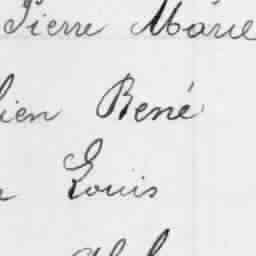 Pierre Marie
ien René
Louis